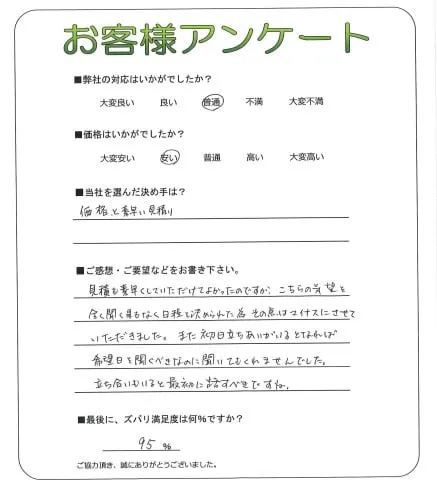 お客様アンケート
■弊社の対応はいかがでしたか？
大変良い 良い 普通 不満 大変不満
■価格はいかがでしたか？
大変安い 安い 普通 高い 大変高い
■当社を選んだ決め手は？
価格と素早い見積り
■ご感想・ご要望などをお書き下さい。
見積も素早くしていただけてよかったのですが、こちらの希望を
全く聞く事もなく日程を決められた為 その点はマイナスにさせて
いただきました。また初日立ちあいがいるとなれば
希望日を聞くべきなのに聞いてもくれませんでした。
立ち合いもいると最初に話すべきですね。
■最後に、ズバリ満足度は何%ですか？
95 %
ご協力頂き、誠にありがとうございました。